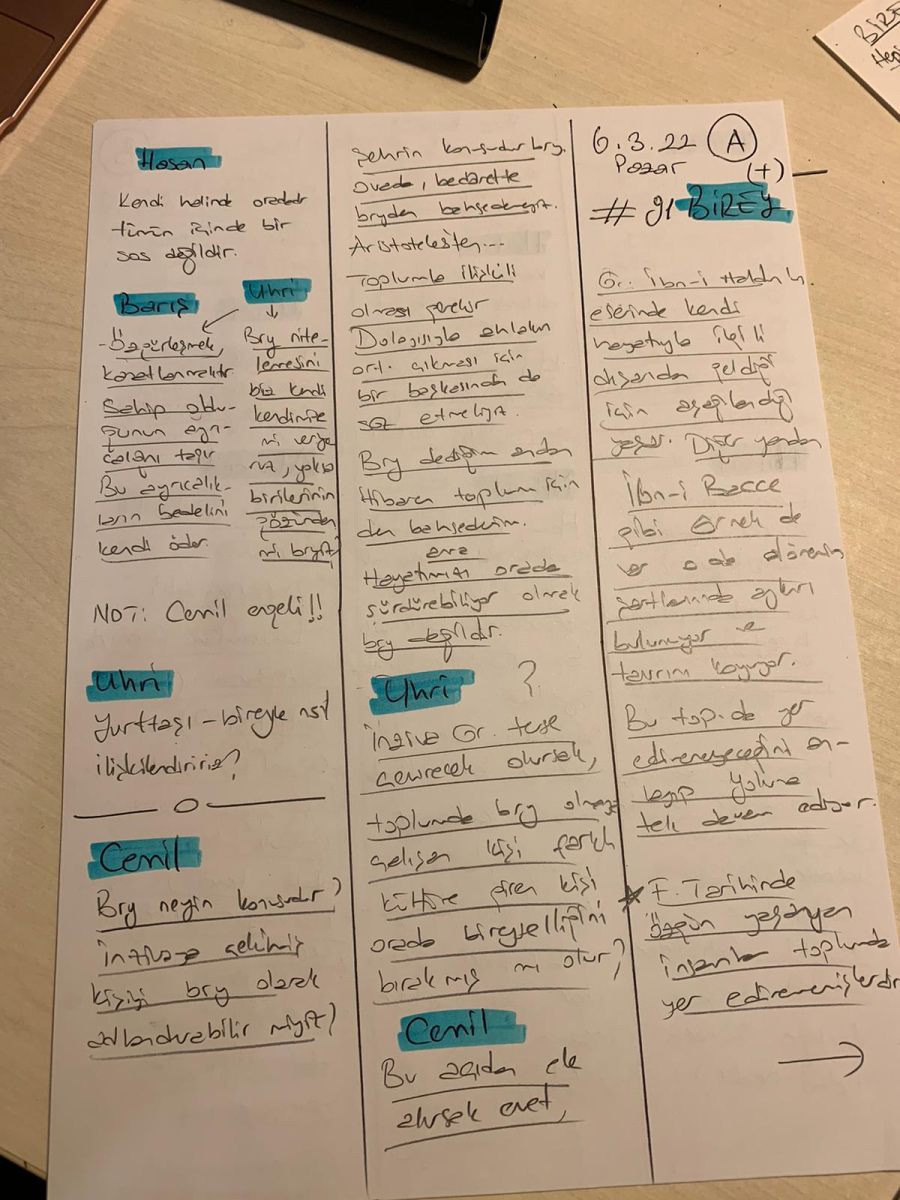 Hasan
Kendi halinde oradadır
tümün içinde bir
ses değildir.
Barış
- Özgürleşmek,
kanatlanmaktır
Sahip oldu-
ğunun ayrı-
calığını taşır
Bu ayrıcalık-
ların bedelini
kendi öder.
Uhri
Bry nite-
lemesini
biz kendi
kendimize
mi veriyo
ruz, yoksa
birilerinin
gözünden
mi bryiz?
NOT: Cemil engeli!!
Uhri
Yurttaşı - bireyle nsl
ilişkilendiririz?
Cemil
Bry neyin konusudur?
İnzivaya çekilmiş
kişiyi bry olarak
adlandırabilir miyiz?
Şehrin konusudur bry.
ovada, bedavette
bryden bahsedemeyiz.
Aristotelesten...
Toplumla ilişkili
olması gerekir
Dolayısıyla ahlakın
ort. çıkması için
bir başkasından da
söz etmeliyiz.
Bry dediğim andan
itibaren toplum için
den bahsederim.
ama
Hayatımızı orada
sürdürebiliyor olmak
bry değildir.
Uhri ?
İnziva Gr. terse
çevirecek olursak,
toplumda bry olmaya
çalışan kişi farklı
kültüre giren kişi
orada bireyselliğini
bırakmış mı olur?
Cemil
Bu açıdan ele
alırsak evet,
6.3.22 A
Pazar (+)
# 91 BİREY
Gr: İbn-i Haldun
eserinde kendi
hayatıyla ilgili
dışarıdan geldiği
için aşağılandığı
yazar. Diğer yandan
İbn-i Bacce
gibi örnek de
var o da dönemin
şartlarında aykırı
bulunuyor ve
tavrını koyuyor.
Bu top.da yer
edinemeyeceğini an-
layıp yoluna
tek devam ediyor.
★ F. Tarihinde
özgün yaşayan
insanlar toplumda
yer edinememişlerdir
→